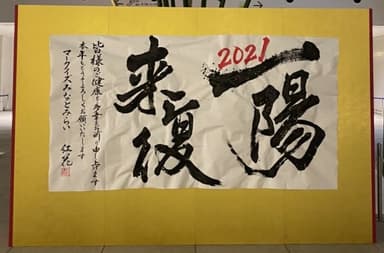 2021
一陽
来復
皆様のご健康とご多幸をお祈り申し上げます
本年もどうぞよろしくお願いいたします
マークイズみなとみらい 紅花